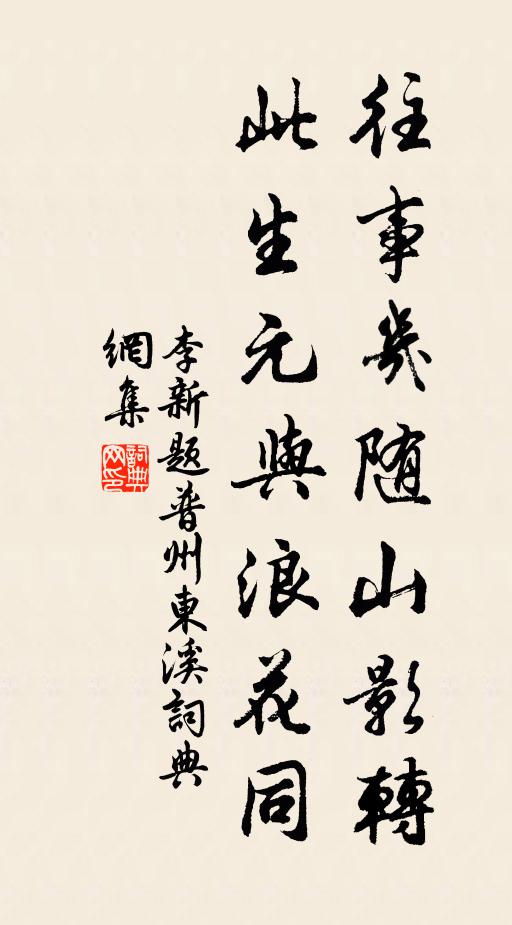 往事幾随山影轉
此生元與浪花同
李新题普州東溪詞典
網集
詞典
网印